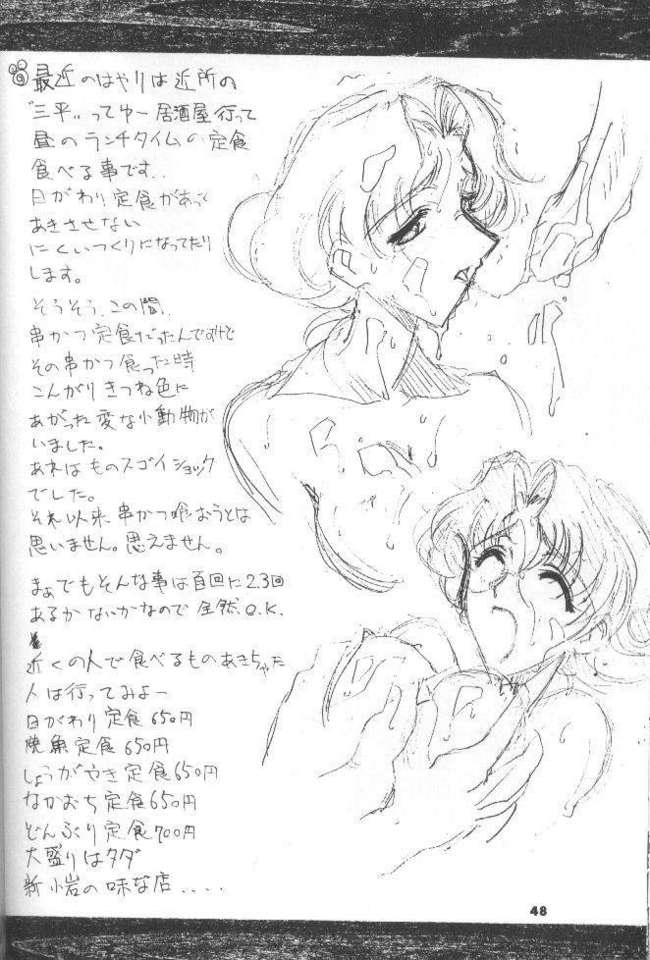 最近のはやりは近所の
"三平"ってゆー居酒屋行って
昼のランチタイムの定食
食べる事です..
日がわり定食があって
あきさせない
にくいつくりになってたり
します。
そうそう、この間、
串かつ定食だったんですけど
その串かつ食った時
こんがりきつね色に
あがった変な小動物が
いました。
あれはものスゴイショック
でした。
それ以来串かつ喰おうとは
思いません。思えません。
まぁでもそんな事は百回に2.3回
あるかないかなので全然O.K.
近くの人で食べるものあきちゃった
人は行ってみよー
日がわり定食650円
焼魚定食650円
しょうがやき定食650円
なかおち定食650円
どんぶり定食700円
大盛りはタダ
新小岩の味な店....
48